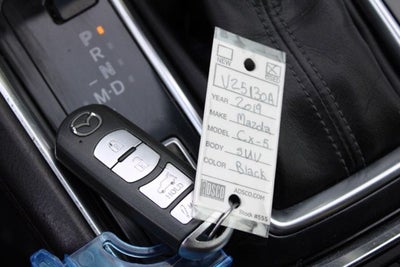 P
R
N
M-D
HOLD
NEW
USED
V25130A
YEAR 2019
MAKE Mazda
MODEL CX-5
BODY SUV
COLOR Black
ADSCO
ADSCO.COM
Stock #555